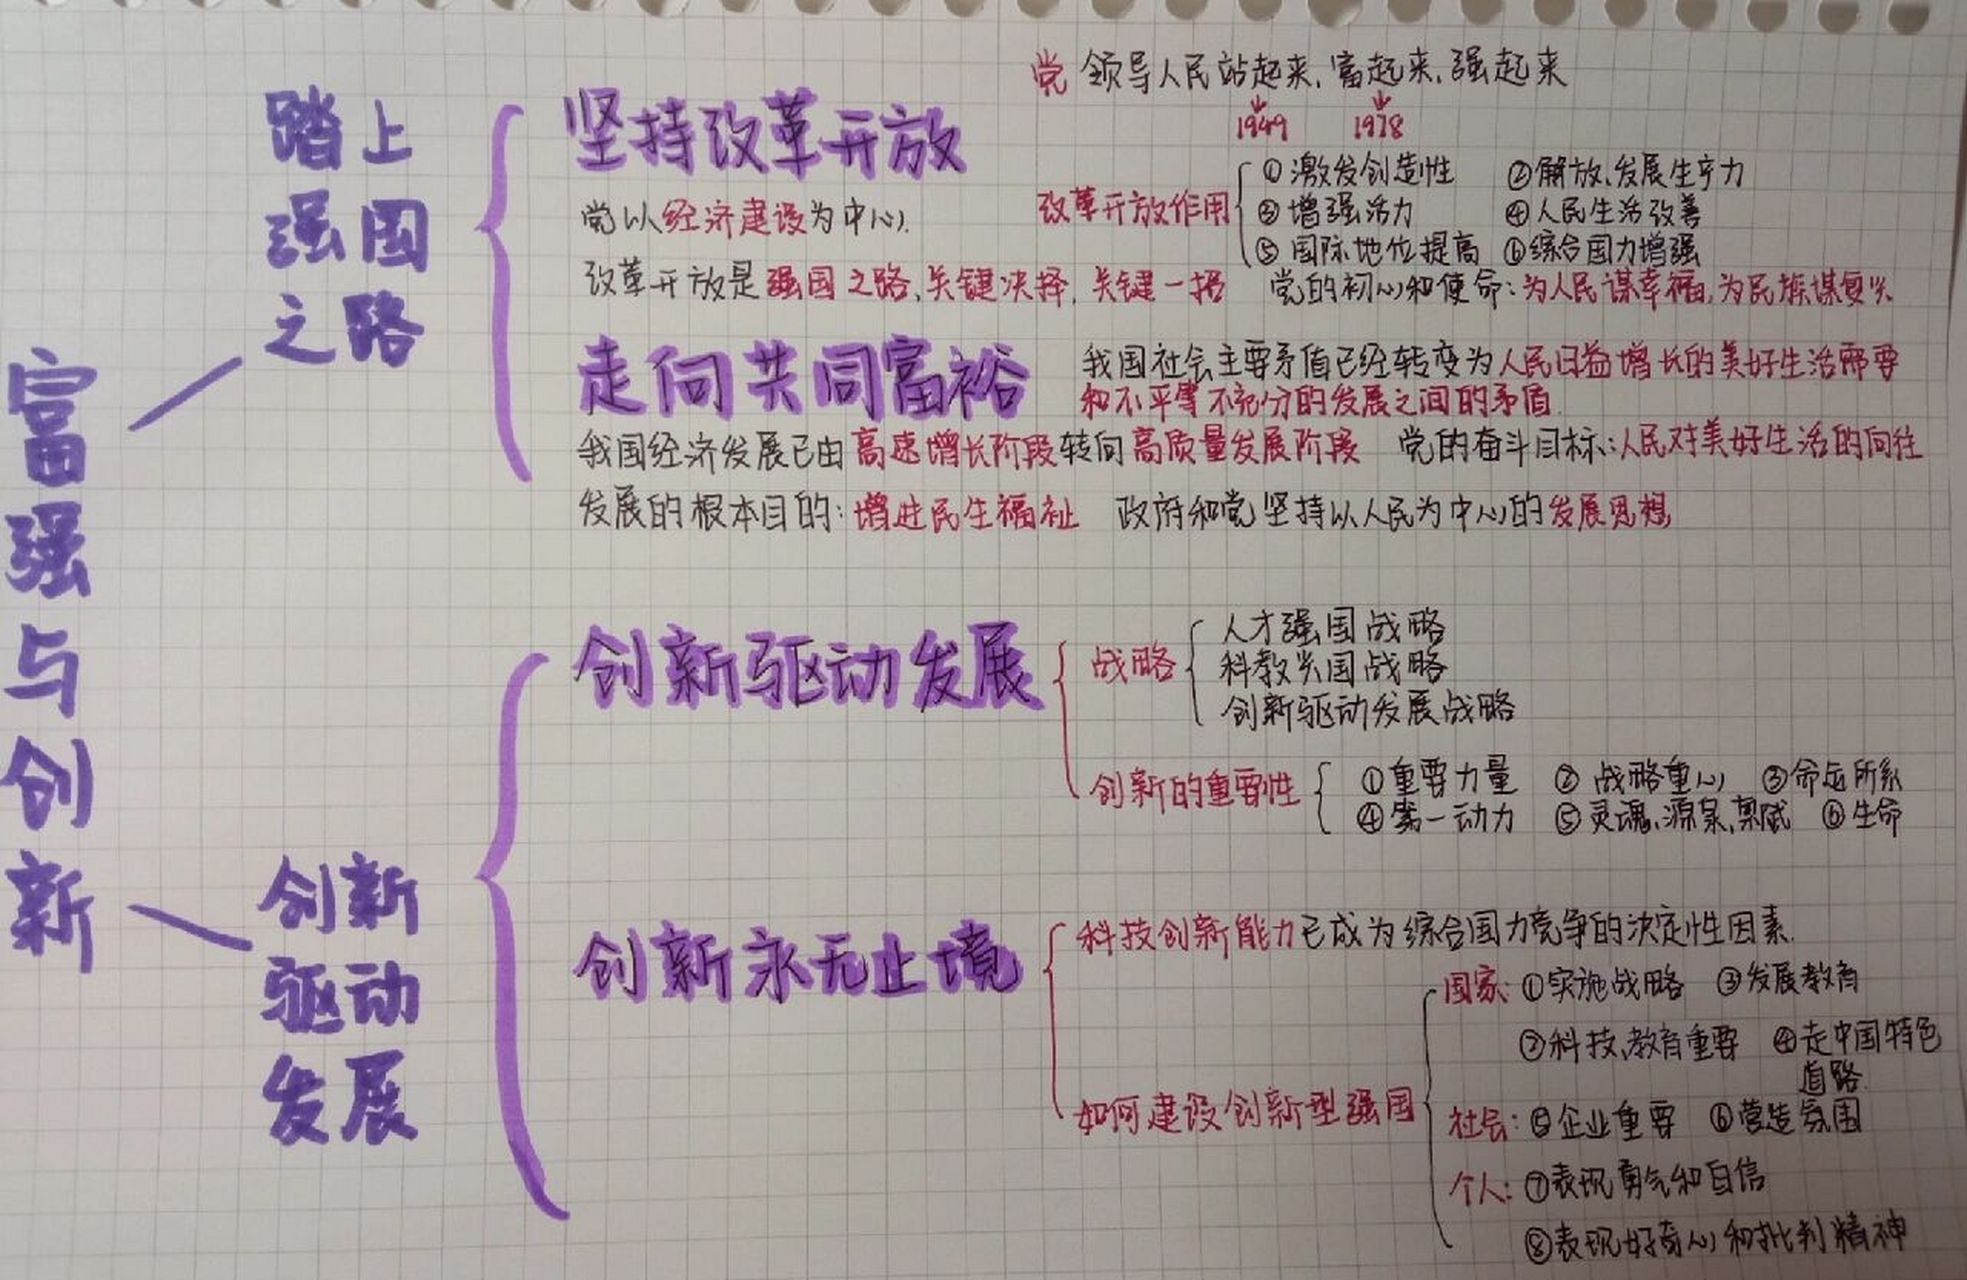 富强与创新
踏上
强国
之路
坚持改革开放
党 领导人民站起来,富起来,强起来
1949 1978
党以经济建设为中心.
改革开放作用
①激发创造性 ②解放、发展生产力
③增强活力 ④人民生活改善
⑤国际地位提高 ⑥综合国力增强
改革开放是强国之路、关键决择,关键一招 党的初心和使命:为人民谋幸福,为民族谋复兴
走向共同富裕
我国社会主要矛盾已经转变为人民日益增长的美好生活需要
和不平等不充分的发展之间的矛盾.
我国经济发展已由高速增长阶段转向高质量发展阶段 党的奋斗目标:人民对美好生活的向往
发展的根本目的:增进民生福祉 政府和党坚持以人民为中心的发展思想
创新
驱动
发展
创新驱动发展
战略
人才强国战略
科教兴国战略
创新驱动发展战略
创新的重要性
①重要力量 ②战略重心 ③命运所系
④第一动力 ⑤灵魂,源泉,禀赋 ⑥生命
创新永无止境
科技创新能力已成为综合国力竞争的决定性因素.
如何建设创新型强国
国家:①实施战略 ③发展教育
②科技,教育重要 ④走中国特色
道路.
社会:⑤企业重要 ⑥营造氛围
个人:⑦表现勇气和自信
⑧表现好奇心和批判精神